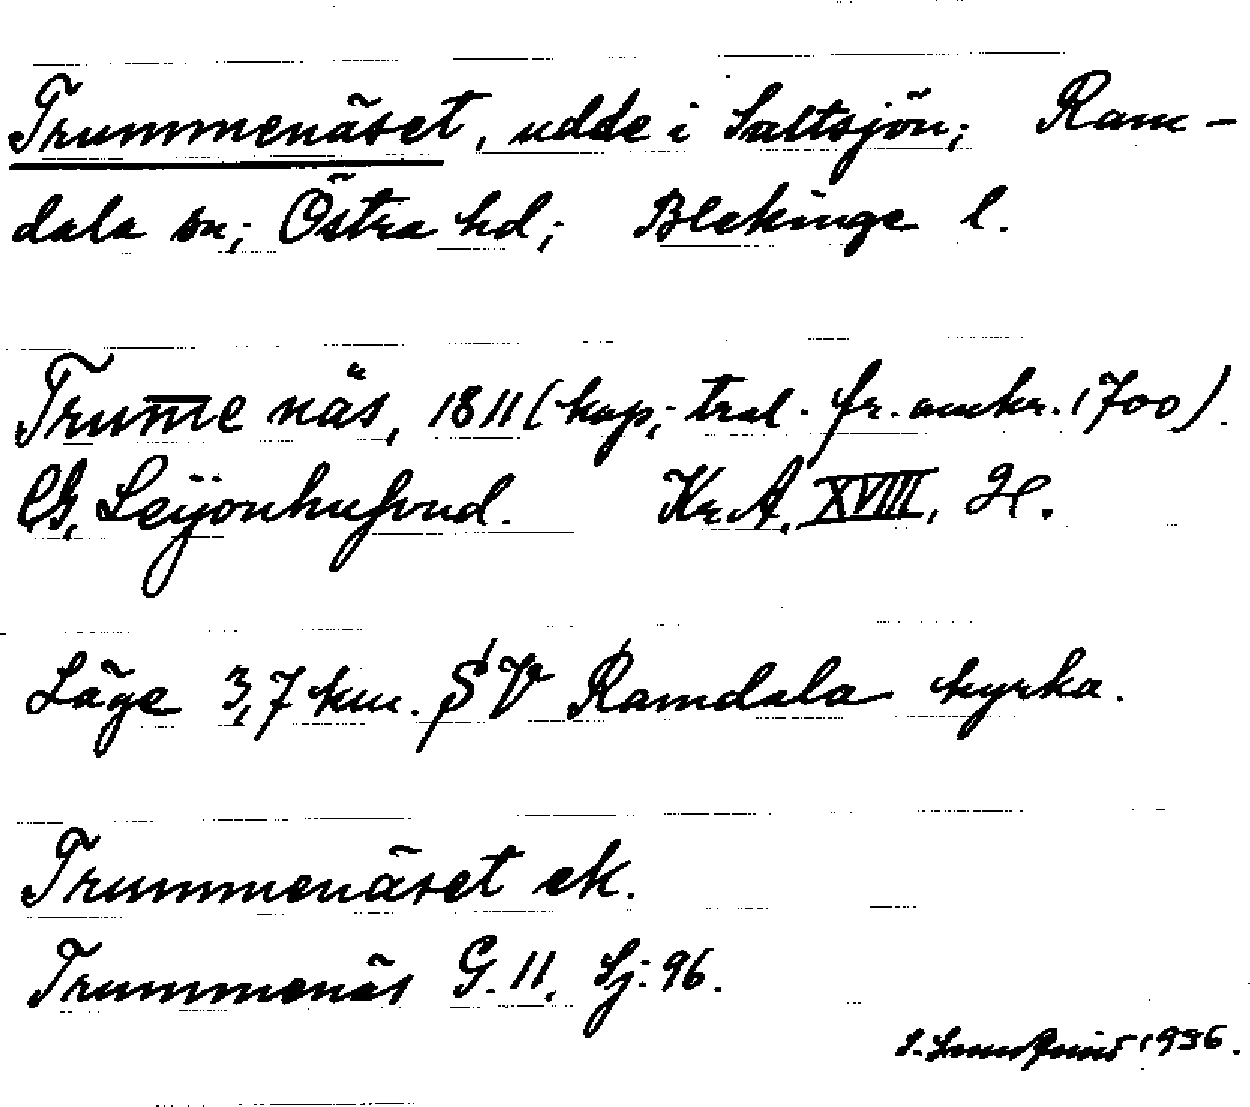 Trummenäset, udde i Saltsjön; Ram-
dala sn; Östra hd; Blekinge l.
Trum̅e näs, 1811 (kop; tral. fr. omkr. 1700).
CG, Leijonhufvud. Kr.A. XVIII, H.
Läge 3,7 km. SV Ramdala kyrka.
Trummenäset ek.
Trummenäs G. 11. Sj: 96.
1936.